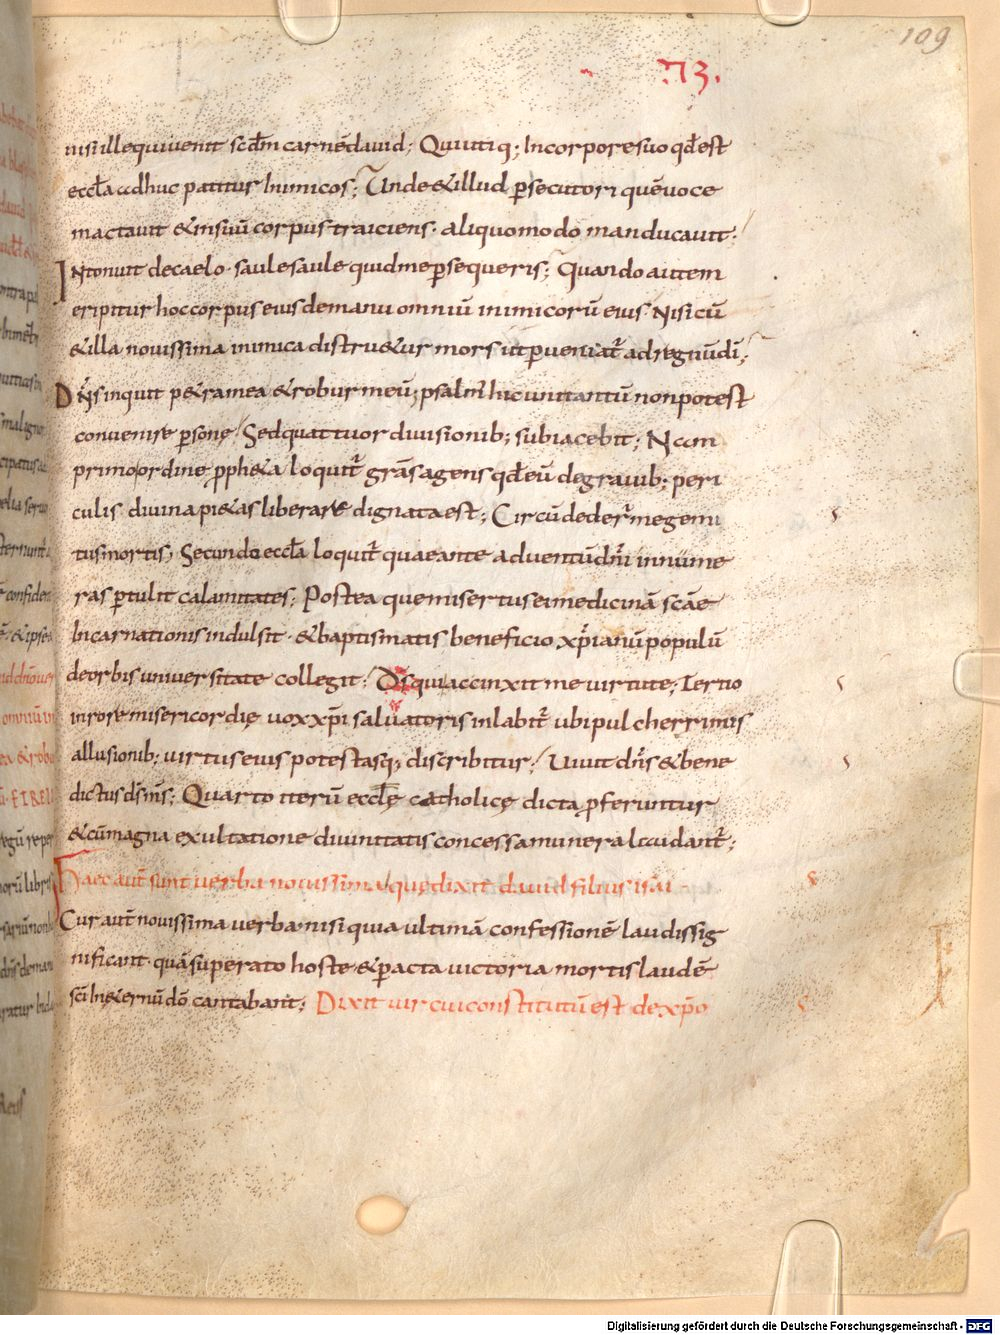 109
.73.
nisi ille qui venit scdm carnē david; Qui utiq; In corpore suo qd est
eccla adhuc patitur Inimicos; Unde & illud psecutori quē voce
mactavit & in suū corpus traiciens. aliquomodo manducavit.
Intonuit de caelo. saule saule quid me psequeris; Quando autem
eripitur hoc corpus eius de manu omniū inimicorū eius. Nisi cū
& illa novissima inimica distru&ur mors ut pveniat ad regnū dī;
Dns inquit p&ra mea & robur meū; psalmi huic unitantū non potest
convenire psone. Sed quattuor divisionib; subiacebit; Nam
primo ordine ppheta loquit grās agens qd eū de gravib; peri
culis divina pi&as liberare dignata est; Circūdeder me gemi
tus mortis; Secundo eccla loquit quae ante adventū dni innume
ras ptulit calamitates; Postea que misertus ei medicinā scae
Incarnationis indulsit. & baptismatis beneficio xpianū populū
de orbis universitate collegit; Ds qui accinxit me virtute; Tertio
in rore misericordię vox xpi salvatoris inlabit ubi pulcherrimis
allusionib; virtus eius potestasq; discribitur; Vivit dns & bene
dictus ds ms; Quarto iterū eccle catholicę dicta pferuntur
& cū magna exultatione divinitatis concessa munera laudant;
Haec aut sunt verba novissima que dixit david filius isai
Cur aut novissima verba. nisi quia ultimā confessionē laudis sig
nificant. quā superato hoste & pacta victoria mortis laudē
sci In &ernū dō cantabant; Dixit vir cui constitutū est de xpo
Digitalisierung gefördert durch die Deutsche Forschungsgemeinschaft - DFG